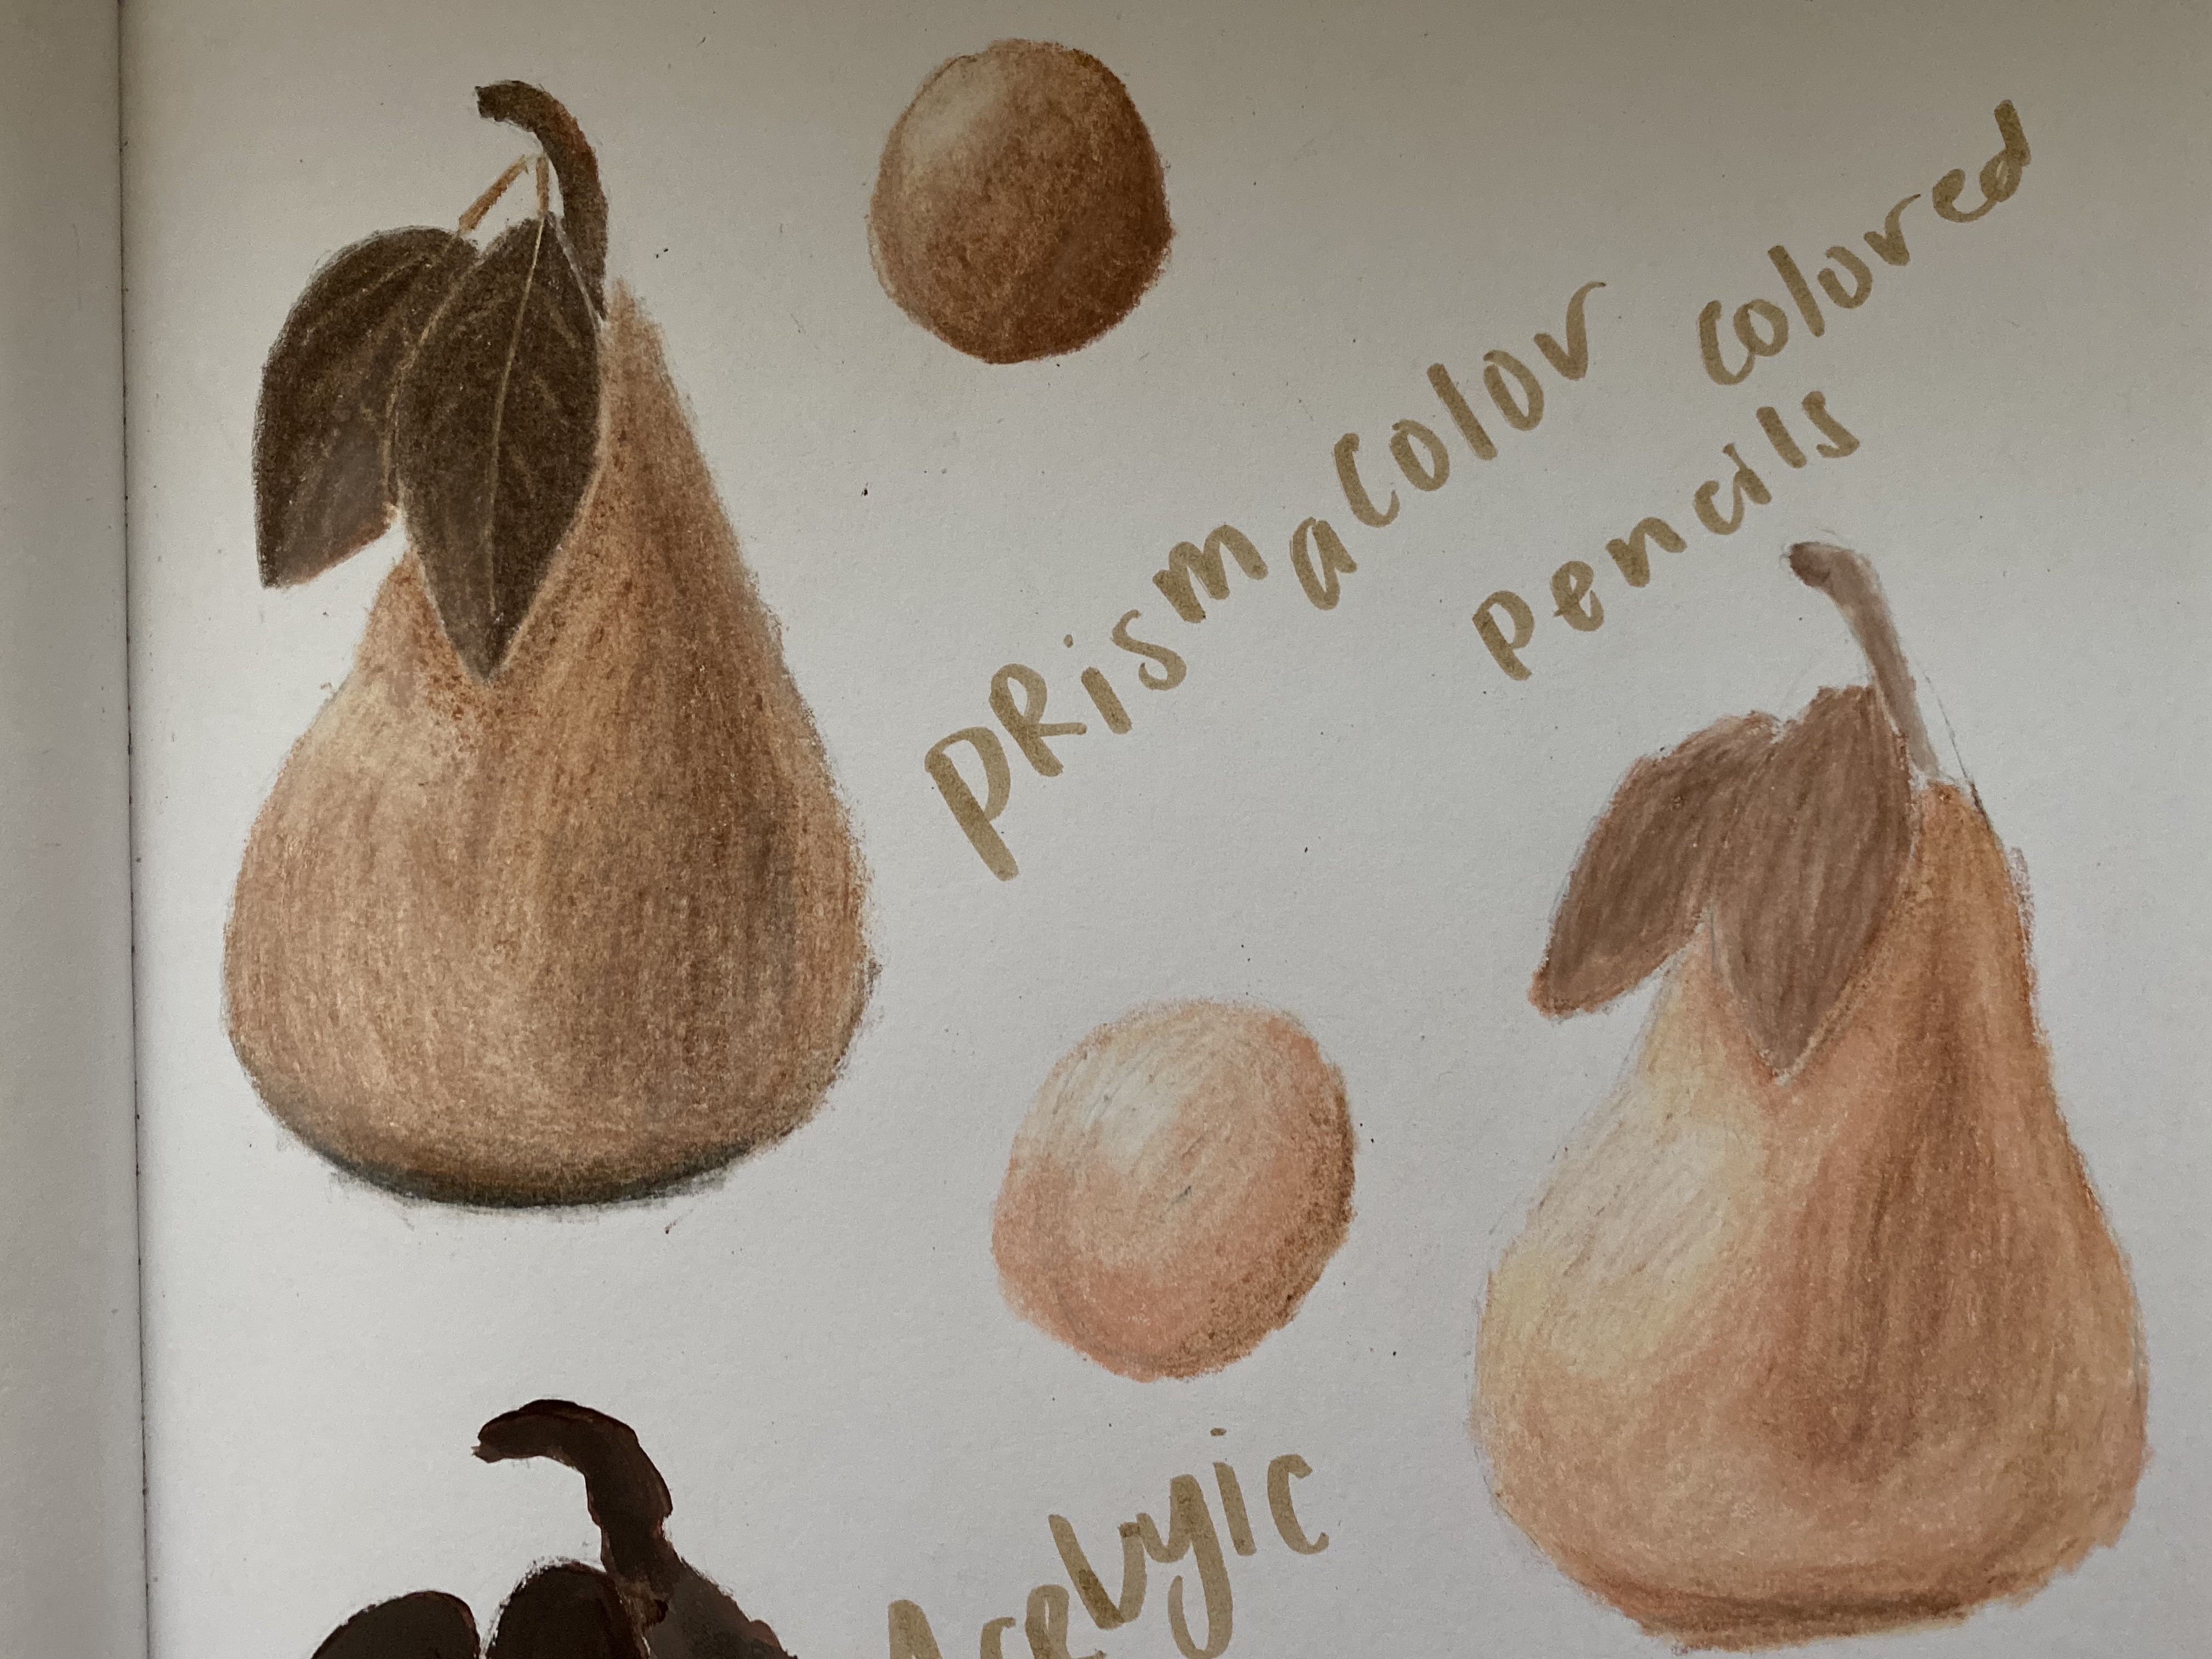 PRismacolor colored
pencils
Acrylyic